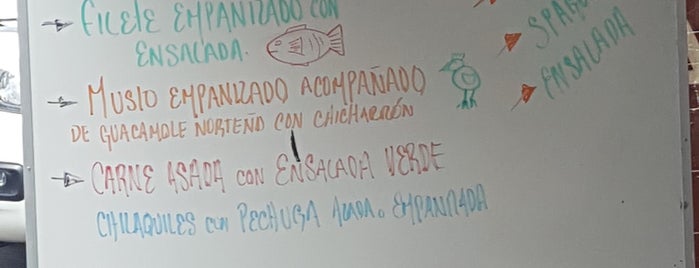 FILETE EMPANIZADO CON
ENSALADA.
MUSLO EMPANIZADO ACOMPAÑADO
DE GUACAMOLE NORTEÑO CON CHICHARRÓN
CARNE ASADA CON ENSALADA VERDE
CHILAQUILES CON PECHUGA ASADA o EMPANIZADA
ENSALADA